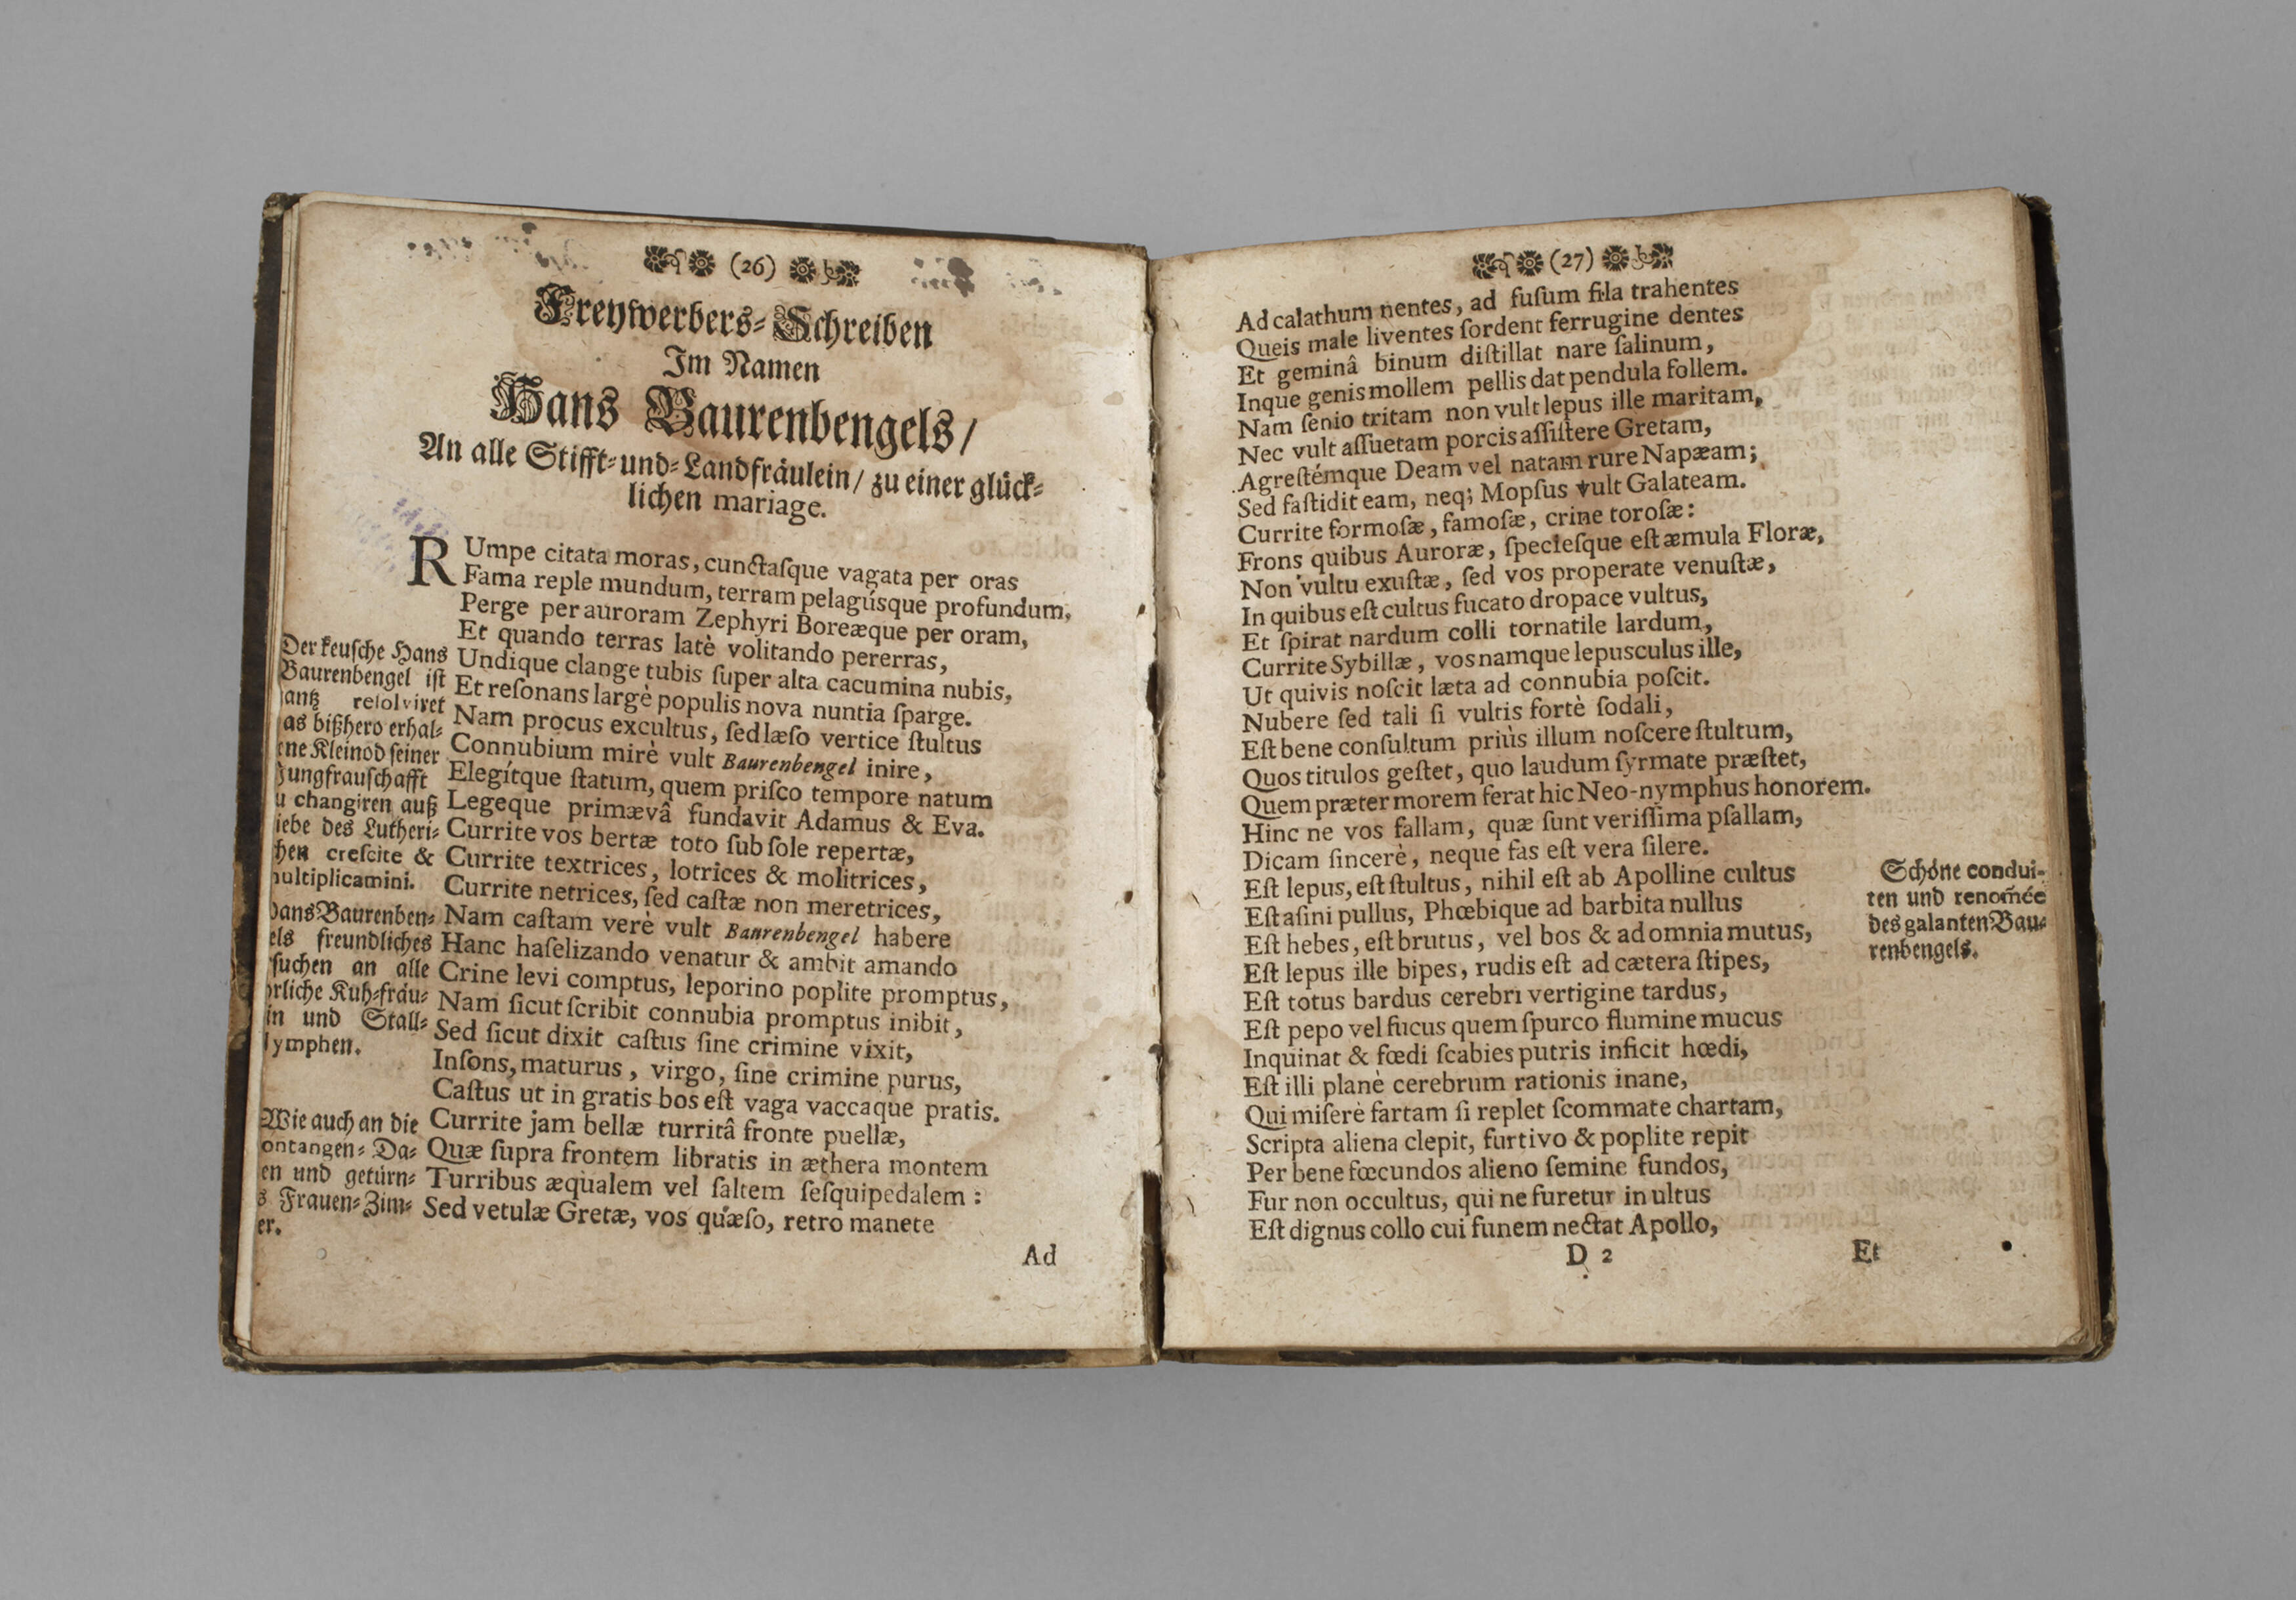 (26)
Freywerbers-Schreiben
Im Namen
Hans Baurenbengels/
An alle Stifft-und-Landfräulein/ zu einer glück-
lichen mariage.
RUmpe citata moras, cunctaſque vagata per oras
Fama reple mundum, terram pelagúsque profundum,
Perge per auroram Zephyri Boreæque per oram,
Et quando terras latè volitando pererras,
Undique clange tubis ſuper alta cacumina nubis,
Et reſonans largè populis nova nuntia ſparge.
Nam procus excultus, ſed læſo vertice ſtultus
Connubium mirè vult Baurenbengel inire,
Elegítque ſtatum, quem priſco tempore natum
Legeque primævâ fundavit Adamus & Eva.
Currite vos bertæ toto ſub ſole repertæ,
Currite textrices, lotrices & molitrices,
Currite netrices, ſed caſtæ non meretrices,
Nam caſtam verè vult Baurenbengel habere
Hanc haſelizando venatur & ambit amando
Crine levi comptus, leporino poplite promptus,
Nam ſicut ſcribit connubia promptus inibit,
Sed ſicut dixit caſtus ſine crimine vixit,
Inſons, maturus, virgo, ſine crimine purus,
Caſtus ut in gratis bos eſt vaga vaccaque pratis.
Currite jam bellæ turritâ fronte puellæ,
Quæ ſupra frontem libratis in æthera montem
Turribus æqualem vel ſaltem ſeſquipedalem:
Sed vetulæ Gretæ, vos quæſo, retro manete
Ad
Der keuſche Hans
Baurenbengel iſt
antz reſolviret
as bißhero erhal-
ene Kleinod ſeiner
Jungfrauſchafft
u changiren auß
iebe des Lutheri-
hen creſcite &
ultiplicamini.
ansBaurenben-
els freundliches
ſuchen an alle
rliche Kuh-fräu-
in und Stall-
ymphen.
Wie auch an die
ontangen-Da-
en und getürn-
s Frauen-Zim-
er.
(27)
Ad calathum nentes, ad fuſum fila trahentes
Queis male liventes ſordent ferrugine dentes
Et geminâ binum diſtillat nare ſalinum,
Inque genis mollem pellis dat pendula follem.
Nam ſenio tritam non vult lepus ille maritam,
Nec vult aſſuetam porcis aſſiſtere Gretam,
Agreſtémque Deam vel natam rure Napæam;
Sed faſtidit eam, neq; Mopſus vult Galateam.
Currite formoſæ, famoſæ, crine toroſæ:
Frons quibus Auroræ, ſpecieſque eſt æmula Floræ,
Non vultu exuſtæ, ſed vos properate venuſtæ,
In quibus eſt cultus fucato dropace vultus,
Et ſpirat nardum colli tornatile lardum,
Currite Sybillæ, vos namque lepusculus ille,
Ut quivis noſcit læta ad connubia poſcit.
Nubere ſed tali ſi vultis fortè ſodali,
Eſt bene conſultum priùs illum noſcere ſtultum,
Quos titulos geſtet, quo laudum ſyrmate præſtet,
Quem præter morem ferat hic Neo-nymphus honorem.
Hinc ne vos fallam, quæ ſunt veriſſima pſallam,
Dicam ſincerè, neque fas eſt vera ſilere.
Eſt lepus, eſt ſtultus, nihil eſt ab Apolline cultus
Eſt aſini pullus, Phœbique ad barbita nullus
Eſt hebes, eſt brutus, vel bos & ad omnia mutus,
Eſt lepus ille bipes, rudis eſt ad cætera ſtipes,
Eſt totus bardus cerebri vertigine tardus,
Eſt pepo vel fucus quem ſpurco flumine mucus
Inquinat & fœdi ſcabies putris inficit hœdi,
Eſt illi planè cerebrum rationis inane,
Qui miſerè fartam ſi replet ſcommate chartam,
Scripta aliena clepit, furtivo & poplite repit
Per bene fœcundos alieno ſemine fundos,
Fur non occultus, qui ne furetur inultus
Eſt dignus collo cui funem nectat Apollo,
D 2 Et
Schöne condui-
ten und renom̃ée
des galanten Bau-
renbengels.